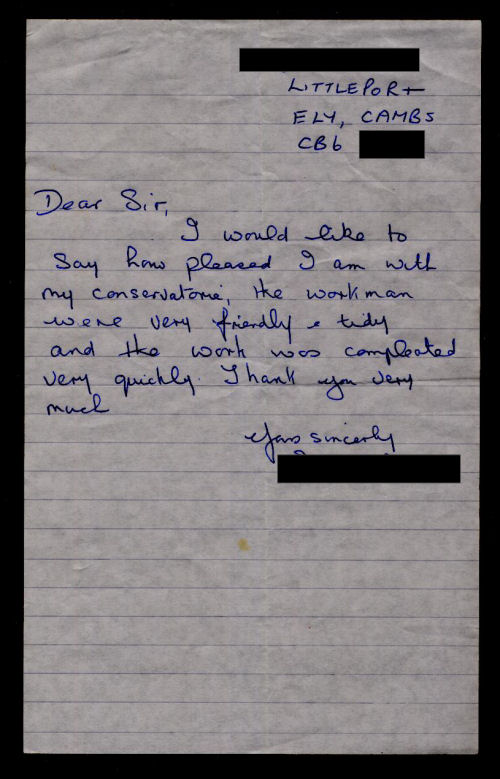 LITTLEPORT
ELY, CAMBS
CB6
Dear Sir,
I would like to
say how pleased I am with
my conservatorie, the workman
were very friendly & tidy
and the work was compleated
very quickly. Thank you very
much
Yours sincerly